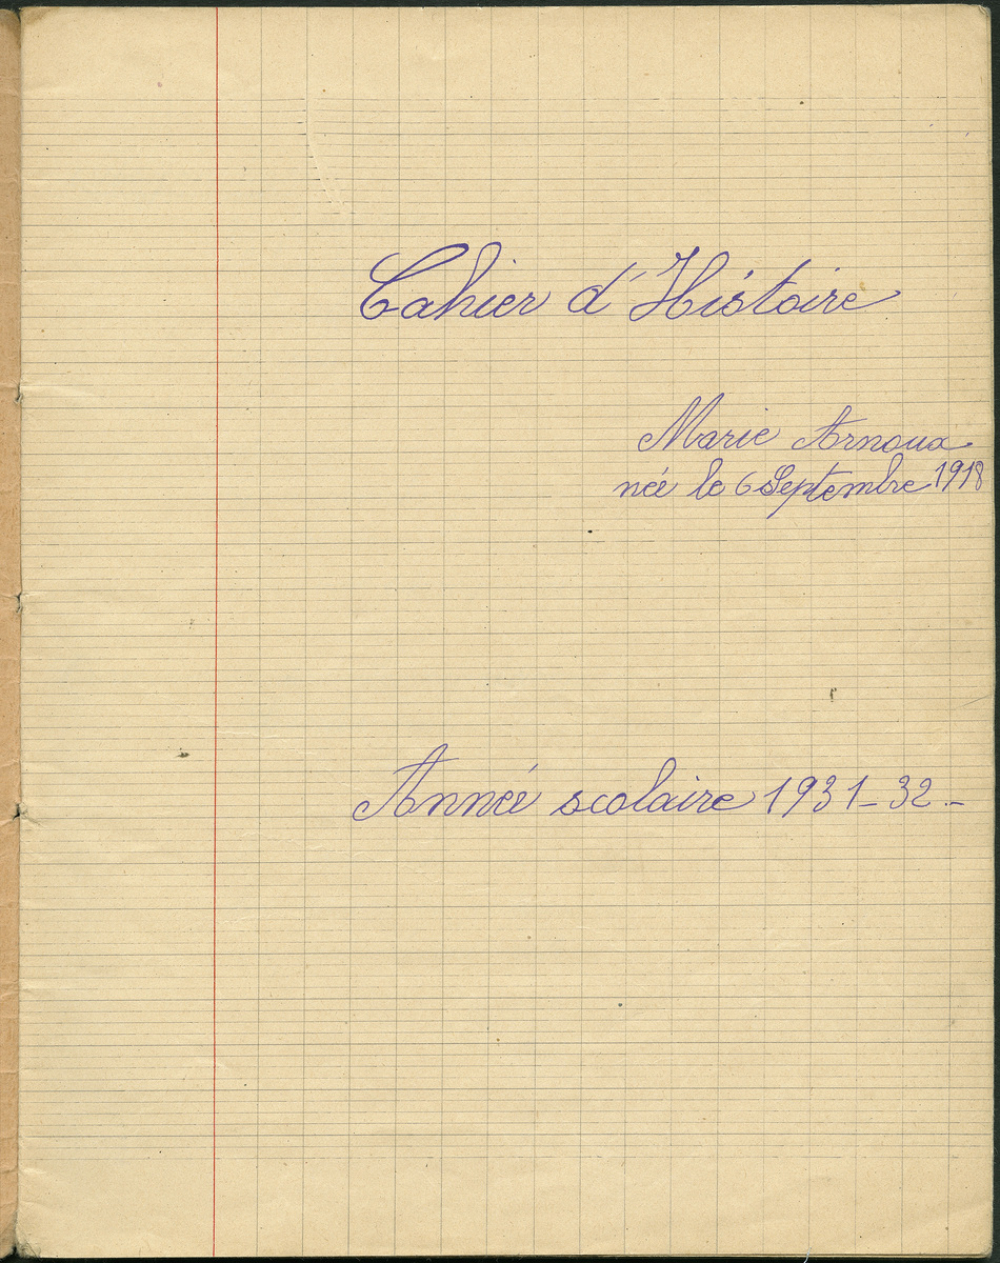 Cahier d'Histoire
Marie Arnoux
née le 6 Septembre 1918
Année scolaire 1931-32.-